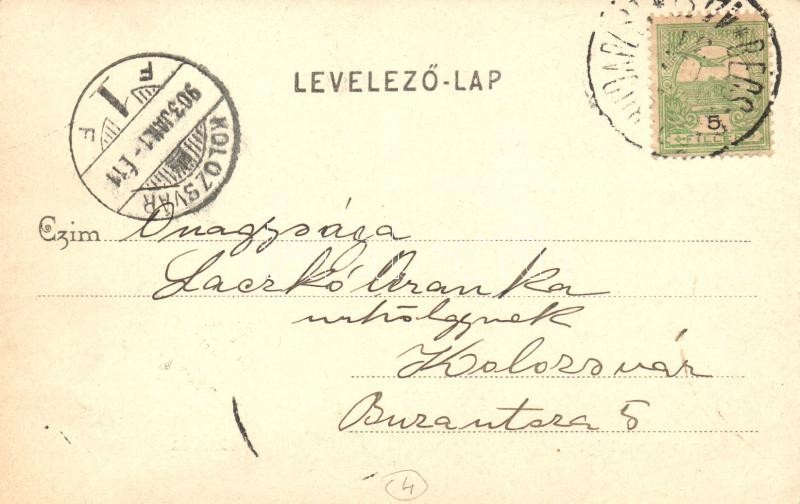 LEVELEZŐ-LAP
KOLOZSVÁR
903 JAN. 1
F
1
F
5
FILLÉR
Czim
Onagysága
Laczkó Aranka
urhölgynek
Kolozsvár
Buzautsza 5
4